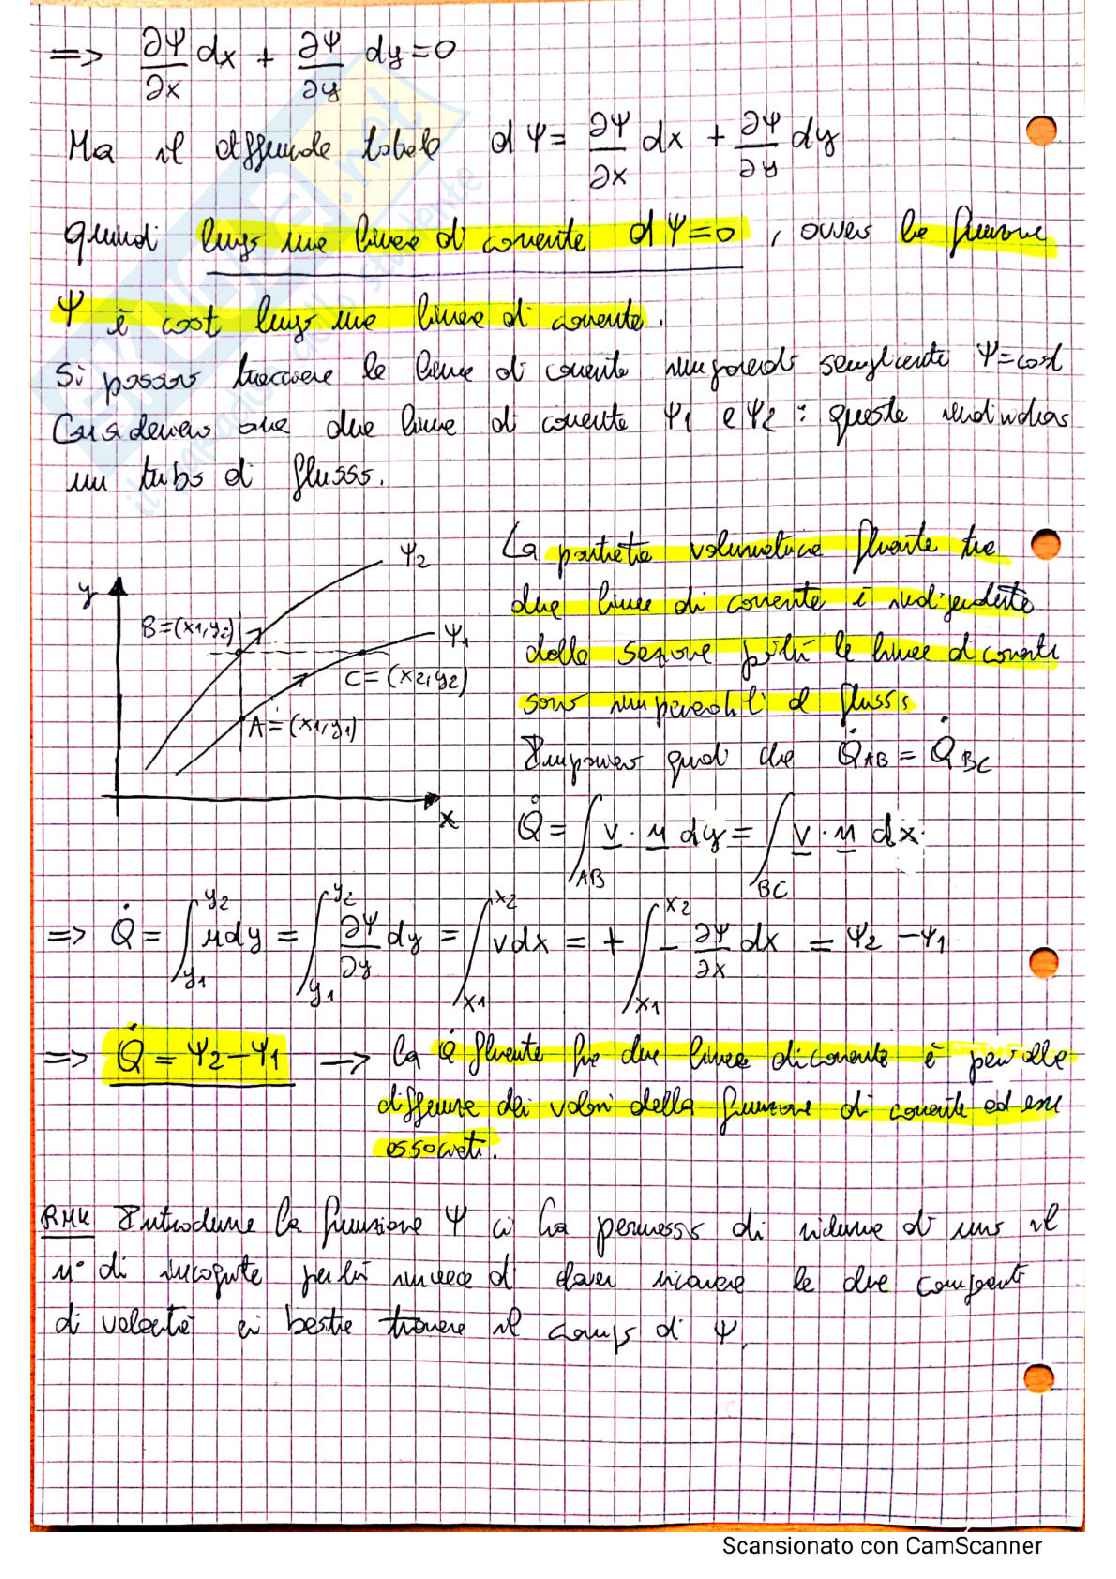 => ∂Ψ/∂x dx + ∂Ψ/∂y dy = 0
Ma il differenziale totale dΨ = ∂Ψ/∂x dx + ∂Ψ/∂y dy
quindi lungo una linea di corrente dΨ=0, ovvero la funzione
Ψ è cost lungo una linea di corrente.
Si possono tracciare le linee di corrente imponendo semplicemente Ψ=cost
Consideriamo ora due linee di corrente Ψ1 e Ψ2 : queste individuano
un tubo di flusso.
La portata volumetrica fluente tra
due linee di corrente è indipendente
dalla sezione poiché le linee di corrente
sono impermeabili al flusso
Imponiamo quindi che Q̇AB = Q̇BC
y
Ψ2
B=(x1,y2)
Ψ1
C=(x2,y2)
A=(x1,y1)
x
Q̇ = ∫AB v · n dy = ∫BC v · n dx
=> Q̇ = ∫y1^y2 u dy = ∫y1^y2 ∂Ψ/∂y dy = ∫x1^x2 v dx = + ∫x1^x2 - ∂Ψ/∂x dx = Ψ2 - Ψ1
=> Q̇ = Ψ2 - Ψ1 → La Q̇ fluente fra due linee di corrente è pari alla
differenza dei valori della funzione di corrente ad esse
associati.
RMK Introdurre la funzione Ψ ci ha permesso di ridurre di uno il
n° di incognite poiché invece di dover ricavare le due componenti
di velocità ci basta trovare il campo di Ψ.
Scansionato con CamScanner